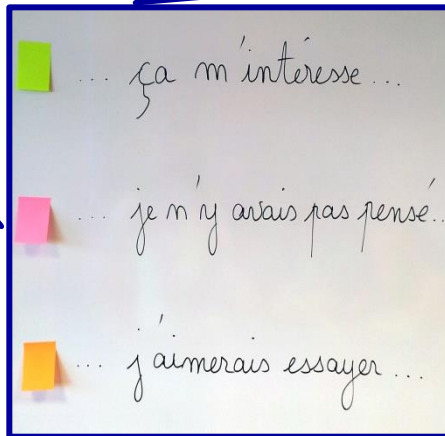 ... ça m'intéresse...
... je n'y avais pas pensé..
... j'aimerais essayer...